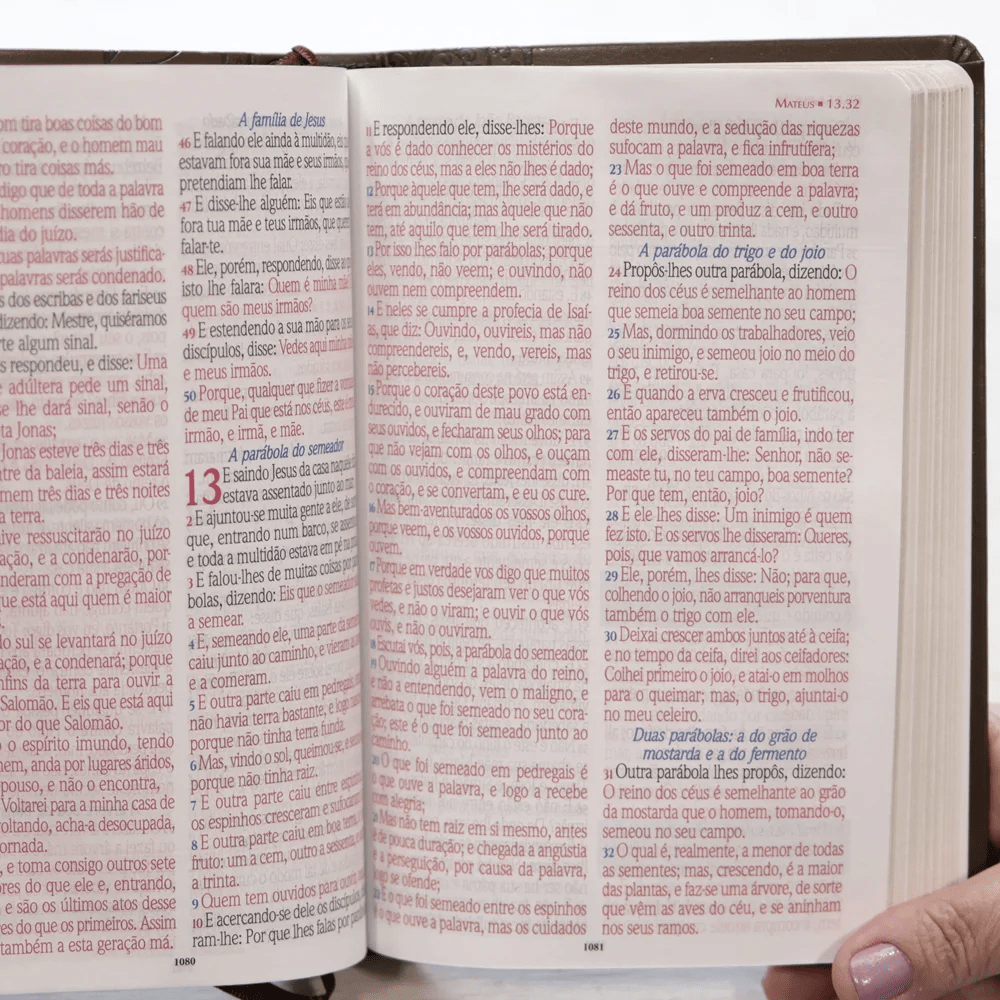 om tira boas coisas do bom
coração, e o homem mau
tira coisas más.
digo que de toda a palavra
homens disserem hão de
dia do juízo.
tuas palavras serás justifica-
palavras serás condenado.
dos escribas e dos fariseus
dizendo: Mestre, quiséramos
algum sinal.
respondeu, e disse: Uma
adúltera pede um sinal,
se lhe dará sinal, senão o
Jonas;
Jonas esteve três dias e três
da baleia, assim estará
três dias e três noites
a terra.
ressuscitarão no juízo
e a condenarão, por-
com a pregação de
que está aqui quem é maior
do sul se levantará no juízo
e a condenará; porque
confins da terra para ouvir a
Salomão. E eis que está aqui
do que Salomão.
o espírito imundo, tendo
anda por lugares áridos,
e não o encontra.
Voltarei para a minha casa de
voltando, acha-a desocupada,
e toma consigo outros sete
do que ele e, entrando,
e são os últimos atos desse
do que os primeiros. Assim
também a esta geração má.
A família de Jesus
46 E falando ele ainda à multidão, eis
estavam fora sua mãe e seus irmãos,
pretendiam lhe falar.
47 E disse-lhe alguém: Eis que estão
fora tua mãe e teus irmãos, que
falar-te.
48 Ele, porém, respondendo, disse ao
isto lhe falara: Quem é minha
quem são meus irmãos?
49 E estendendo a sua mão para os seus
discípulos, disse: Vedes aqui minha
e meus irmãos.
50 Porque, qualquer que fizer a vontade
de meu Pai que está nos céus, este é
irmão, e irmã, e mãe.
A parábola do semeador
13 E saindo Jesus da casa naquele
estava assentado junto ao mar.
2 E ajuntou-se muita gente a ele, de
que, entrando num barco, se assentou
e toda a multidão estava em pé na
3 E falou-lhes de muitas coisas por
bolas, dizendo: Eis que o semeador
a semear.
4 E, semeando ele, uma parte da semente
caiu junto ao caminho, e vieram
e a comeram.
5 E outra parte caiu em pedregais,
não havia terra bastante, e logo
porque não tinha terra funda.
6 Mas, vindo o sol, queimou-se, e
porque não tinha raiz.
7 E outra parte caiu entre
os espinhos cresceram e
8 E outra parte caiu em boa terra,
fruto: um a cem, outro a
a trinta.
9 Quem tem ouvidos para ouvir,
10 E acercando-se dele os discípulos,
ram-lhe: Por que lhes falas por
1080
MATEUS ▪ 13.32
11 E respondendo ele, disse-lhes: Porque
a vós é dado conhecer os mistérios do
reino dos céus, mas a eles não lhes é dado;
12 Porque àquele que tem, lhe será dado, e
terá em abundância; mas àquele que não
tem, até aquilo que tem lhe será tirado.
13 Por isso lhes falo por parábolas; porque
eles, vendo, não veem; e ouvindo, não
ouvem nem compreendem.
14 E neles se cumpre a profecia de Isaí-
as, que diz: Ouvindo, ouvireis, mas não
compreendereis, e, vendo, vereis, mas
não percebereis.
15 Porque o coração deste povo está en-
durecido, e ouviram de mau grado com
seus ouvidos, e fecharam seus olhos; para
que não vejam com os olhos, e ouçam
com os ouvidos, e compreendam com
o coração, e se convertam, e eu os cure.
16 Mas bem-aventurados os vossos olhos,
porque veem, e os vossos ouvidos, porque
ouvem.
17 Porque em verdade vos digo que muitos
profetas e justos desejaram ver o que vós
vedes, e não o viram; e ouvir o que vós
ouvis, e não o ouviram.
18 Escutai vós, pois, a parábola do semeador.
19 Ouvindo alguém a palavra do reino,
e não a entendendo, vem o maligno, e
arrebata o que foi semeado no seu cora-
ção; este é o que foi semeado junto ao
caminho.
20 O que foi semeado em pedregais é
o que ouve a palavra, e logo a recebe
com alegria;
21 Mas não tem raiz em si mesmo, antes
é de pouca duração; e chegada a angústia
e a perseguição, por causa da palavra,
logo se ofende;
22 E o que foi semeado entre os espinhos
é o que ouve a palavra, mas os cuidados
deste mundo, e a sedução das riquezas
sufocam a palavra, e fica infrutífera;
23 Mas o que foi semeado em boa terra
é o que ouve e compreende a palavra;
e dá fruto, e um produz a cem, e outro
sessenta, e outro trinta.
A parábola do trigo e do joio
24 Propôs-lhes outra parábola, dizendo: O
reino dos céus é semelhante ao homem
que semeia boa semente no seu campo;
25 Mas, dormindo os trabalhadores, veio
o seu inimigo, e semeou joio no meio do
trigo, e retirou-se.
26 E quando a erva cresceu e frutificou,
então apareceu também o joio.
27 E os servos do pai de família, indo ter
com ele, disseram-lhe: Senhor, não se-
measte tu, no teu campo, boa semente?
Por que tem, então, joio?
28 E ele lhes disse: Um inimigo é quem
fez isto. E os servos lhe disseram: Queres,
pois, que vamos arrancá-lo?
29 Ele, porém, lhes disse: Não; para que,
colhendo o joio, não arranqueis porventura
também o trigo com ele.
30 Deixai crescer ambos juntos até à ceifa;
e no tempo da ceifa, direi aos ceifadores:
Colhei primeiro o joio, e atai-o em molhos
para o queimar; mas, o trigo, ajuntai-o
no meu celeiro.
Duas parábolas: a do grão de
mostarda e a do fermento
31 Outra parábola lhes propôs, dizendo:
O reino dos céus é semelhante ao grão
da mostarda que o homem, tomando-o,
semeou no seu campo.
32 O qual é, realmente, a menor de todas
as sementes; mas, crescendo, é a maior
das plantas, e faz-se uma árvore, de sorte
que vêm as aves do céu, e se aninham
nos seus ramos.
1081